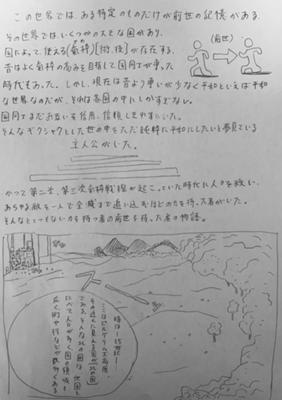 この世界では、ある特定のものだけが前世の記憶がある。
(前世)
その世界では、いくつかの大きな国があり、
国によって、使える【気術】【術技】が存在する。
昔はよく気術の高みを目指して国同士が争った
時代もあった。しかし、現在は昔より争いが少なく平和といえば平和
な世界なのだが、それは各国の中にしかすぎない。
国同士まだお互いを信用、信頼しきれずにいた。
そんなギクシャクとした世の中をただ純粋に平和にしたいと夢見ている
主人公がいた。
かつて第二次、第三次気術戦争が起こっていた時代に人々を救い、
あらゆる敵を一人で全滅まで追い込むほどの力を持った者がいた。
そんなとてつもない力を持つ者の前世を持った者の物語。
時は-15世紀-